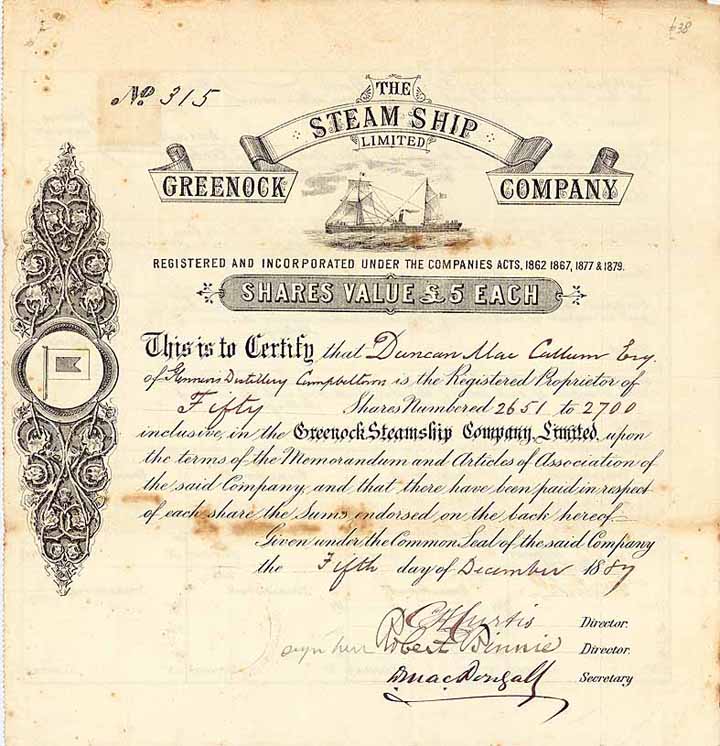 638
No 315
THE
STEAM SHIP
LIMITED
GREENOCK COMPANY
REGISTERED AND INCORPORATED UNDER THE COMPANIES ACTS, 1862 1867, 1877 & 1879.
SHARES VALUE £5 EACH
This is to Certify that Duncan Mac Callum Esq.
of Glennevis Distillery Campbeltown is the Registered Proprietor of
Fifty Shares Numbered 2651 to 2700
inclusive, in the Greenock Steamship Company, Limited, upon
the terms of the Memorandum and Articles of Association of
the said Company, and that there have been paid in respect
of each share the Sums endorsed on the back hereof.
Given under the Common Seal of the said Company
the Fifth day of December 1887
Curtis Director.
sign here Robert Binnie Director.
MacDougall Secretary